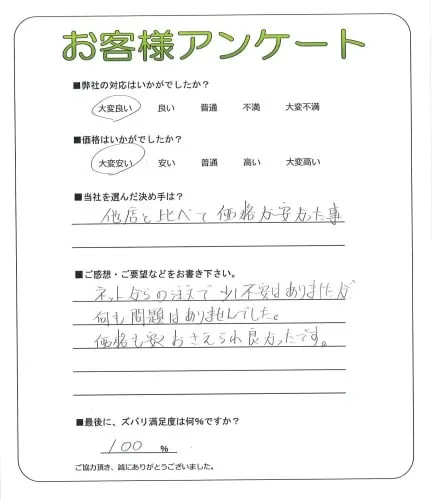 お客様アンケート
■弊社の対応はいかがでしたか？
大変良い 良い 普通 不満 大変不満
■価格はいかがでしたか？
大変安い 安い 普通 高い 大変高い
■当社を選んだ決め手は？
他店と比べて価格が安かった事
■ご感想・ご要望などをお書き下さい。
ネットからの注文で少し不安はありましたが
何も問題はありませんでした。
価格も安くおさえられ良かったです。
■最後に、ズバリ満足度は何％ですか？
100 %
ご協力頂き、誠にありがとうございました。